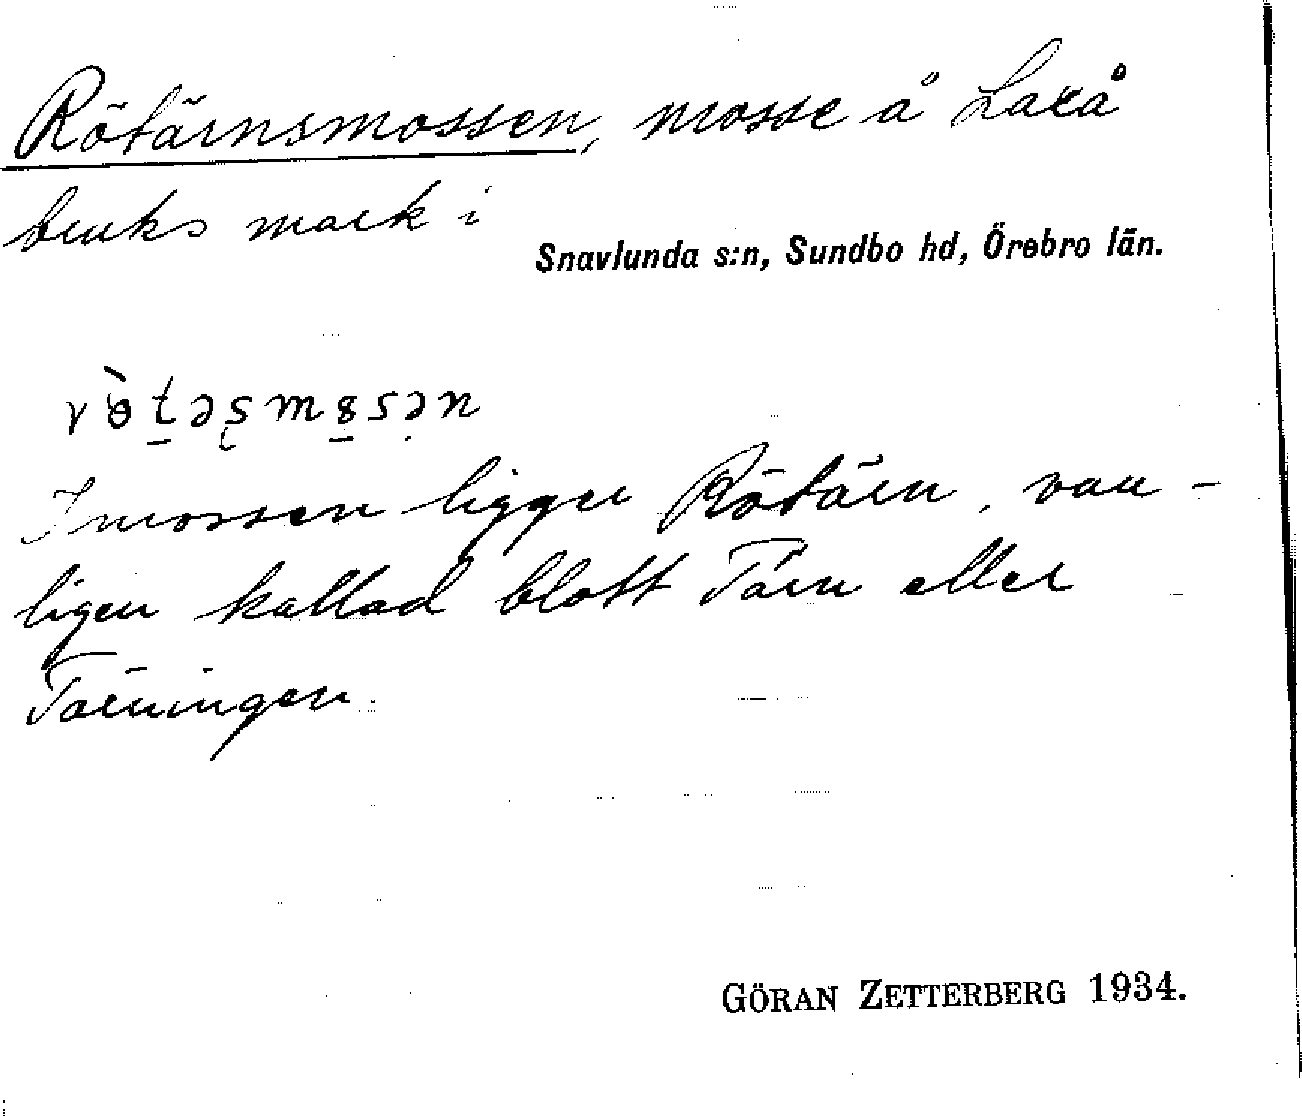 Rötärnsmossen, mosse å Laxå
bruks mark i
Snavlunda s:n, Sundbo hd, Örebro län.
I mossen ligger Rötärn, van-
ligen kallad blott Tärn eller
Tärningen.
GÖRAN ZETTERBERG 1934.